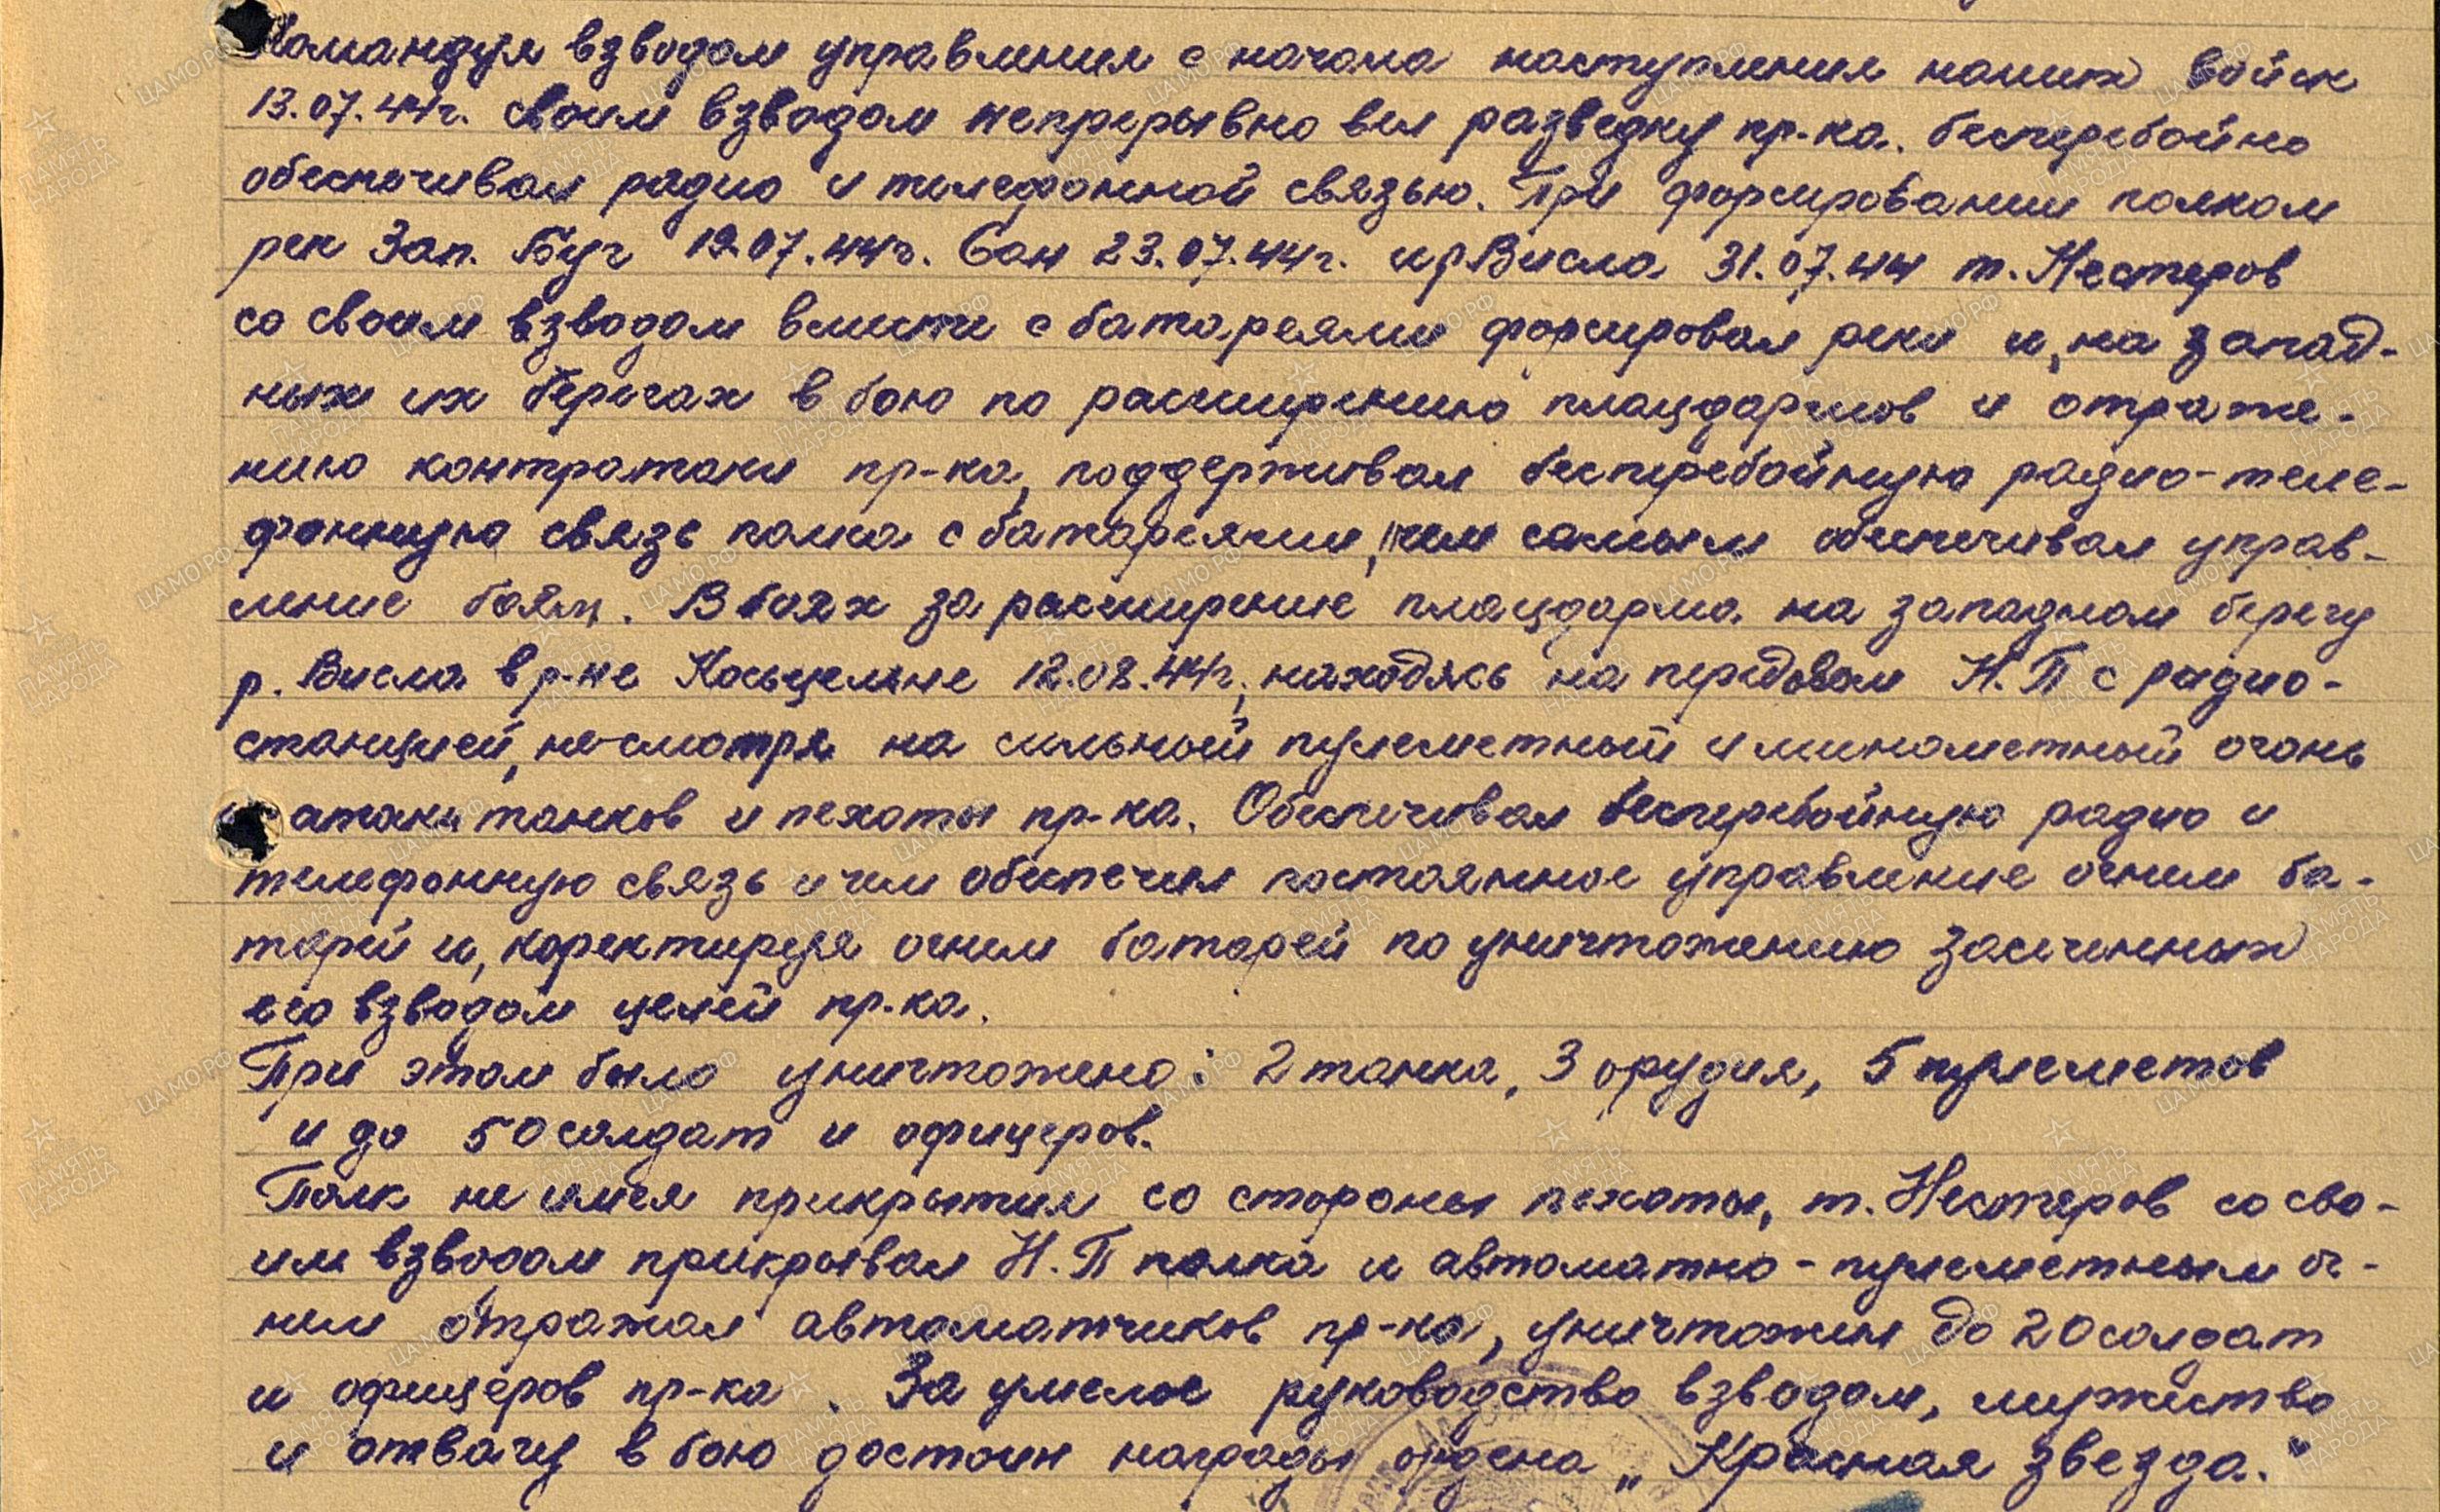 Командуя взводом управления с начала наступления наших войск
13.07.44г. своим взводом непрерывно вел разведку пр-ка. бесперебойно
обеспечивал радио и телефонной связью. При форсировании полком
рек Зап. Буг 19.07.44г. Сан 23.07.44г. и р Висла 31.07.44 т. Нестеров
со своим взводом вместе с батареями форсировал реки и, на запад-
ных их берегах в бою по расширению плацдармов и отраже-
нию контратаки пр-ка, поддерживал бесперебойную радио-теле-
фонную связь полка с батареями, чем самым обеспечивал управ-
ление боям. В боях за расширение плацдарма на западном берегу
р. Висла в р-не Косьцельне 12.08.44г., находясь на передовом Н.П с радио-
станцией, несмотря на сильный пулеметный и минометный огонь
и атаки танков и пехоты пр-ка. Обеспечивал бесперебойную радио и
телефонную связь и чем обеспечил постоянное управление огнем ба-
тарей и, коректируя огнем батарей по уничтожению засеченных
его взводом целей пр.ка.
При этом было уничтожено: 2 танка, 3 орудия, 5 пулеметов
и до 50 солдат и офицеров.
Полк не имея прикрытия со стороны пехоты, т. Нестеров со сво-
им взводом прикрывал Н.П полка и автоматно-пулеметным ог-
нем отражал автоматчиков пр-ка, уничтожил до 20 солдат
и офицеров пр-ка. За умелое руководство взводом, мужество
и отвагу в бою достоин награды ордена „Красная звезда."